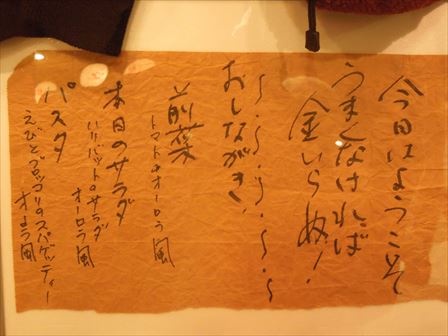 今日はようこそ
うまくなければ
金いらぬ！
〜・〜・〜・〜・〜
おしながき
前菜
トマトのオーロラ風
本日のサラダ
ハリバットのサラダ
オーロラ風
パスタ
えびとブロッコリのスパゲッティー
オーロラ風